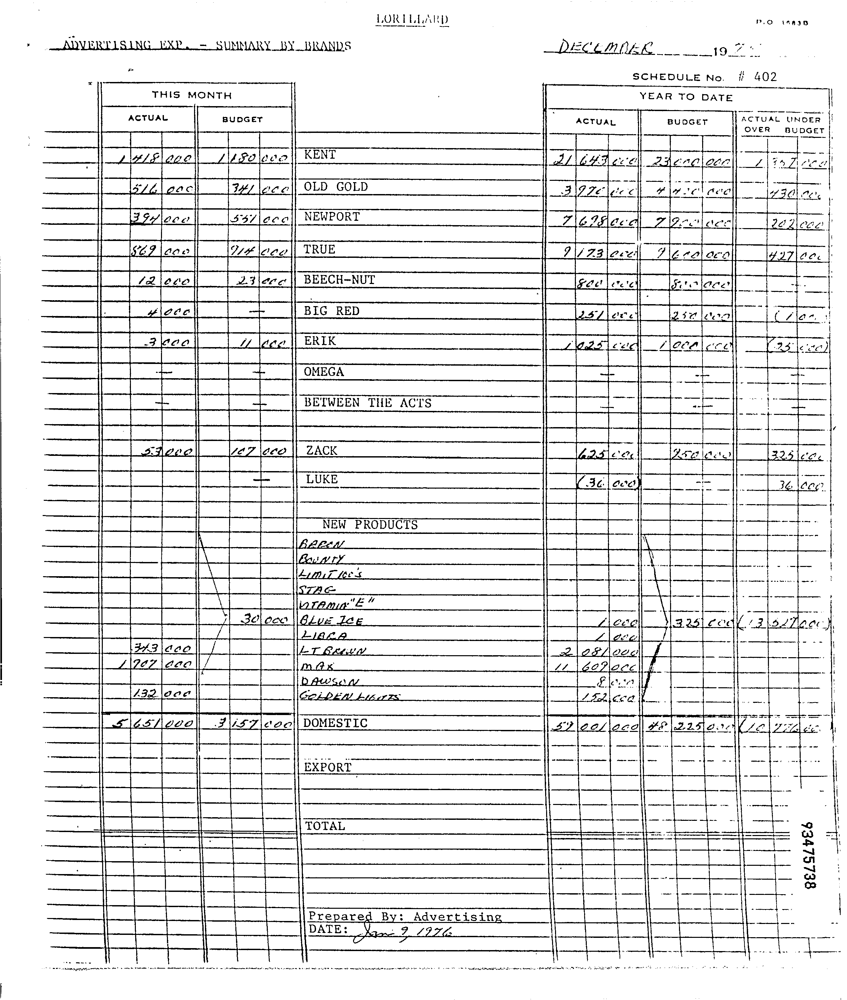 LORILLARD
ADVERTISING EXP. - SUMMARY BY BRANDS DECEMBER 197
SCHEDULE No. # 402
THIS MONTH YEAR TO DATE
ACTUAL BUDGET ACTUAL BUDGET ACTUAL UNDER OVER BUDGET
1 418 000 1 180 000 KENT 21 643 000 23 000 000 1 357 000
516 000 341 000 OLD GOLD 3 970 000 4 400 000 430 000
394 000 551 000 NEWPORT 7 698 000 7 900 000 202 000
869 000 914 000 TRUE 9 173 000 9 600 000 427 000
12 000 23 000 BEECH-NUT 800 000 800 000 —
4 000 — BIG RED 251 000 250 000 (1 000)
3 000 11 000 ERIK 1 025 000 1 000 000 (25 000)
— — OMEGA — — —
— — BETWEEN THE ACTS — — —
53 000 107 000 ZACK 625 000 950 000 325 000
— LUKE (36 000) — 36 000
NEW PRODUCTS
BARON
BOUNTY
LIMIT 100's
STAG
VITAMIN "E"
30 000 BLUE ICE 1 000 325 000 (13 527 000)
LIBRA 1 000
343 000 LT BROWN 2 081 000
1 907 000 MAX 11 609 000
DAWSON 8 000
132 000 GOLDEN LIGHTS 152 000
5 651 000 3 157 000 DOMESTIC 59 001 000 48 225 000 (10 776 000
EXPORT
TOTAL
93475738
Prepared By: Advertising
DATE: Jan 9, 1976